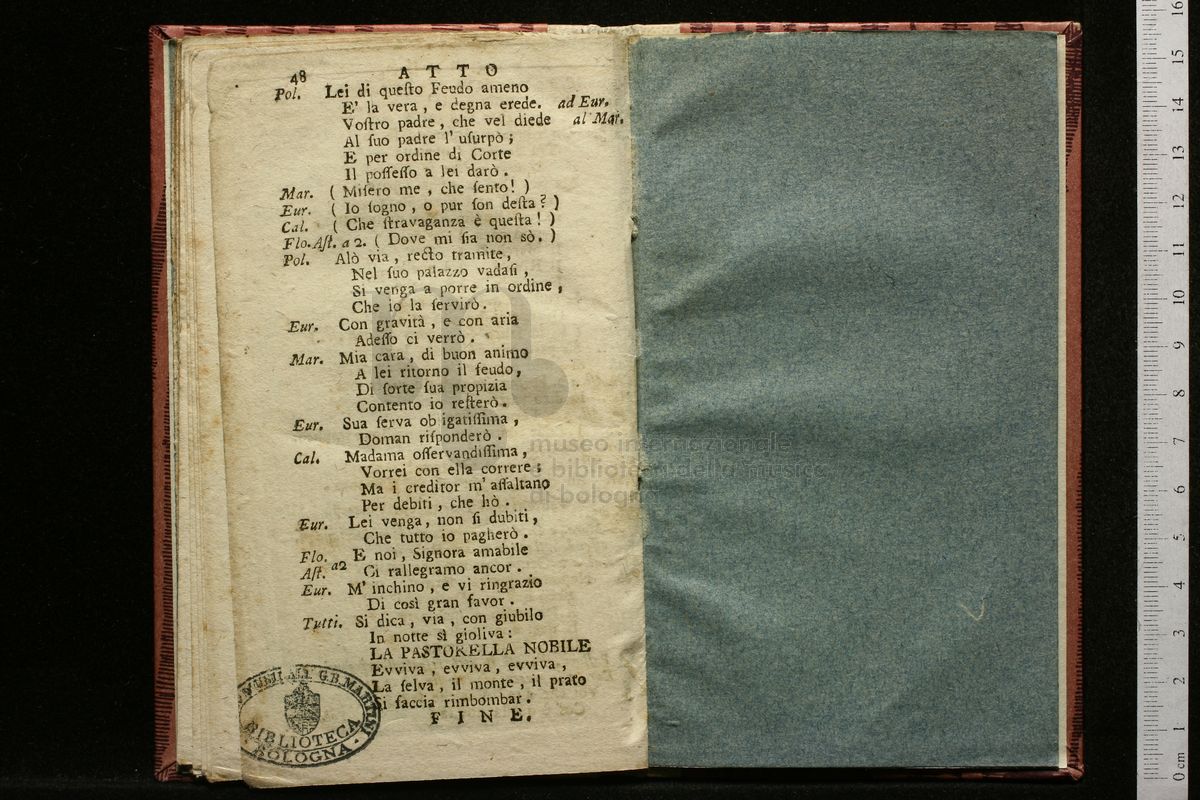 48 ATTO
Pol. Lei di queſto Feudo ameno
E' la vera, e degna erede. ad Eur.
Voſtro padre, che vel diede al Mar.
Al ſuo padre l'uſurpò;
E per ordine di Corte
Il poſſeſſo a lei darò.
Mar. ( Miſero me, che ſento! )
Eur. ( Io ſogno, o pur ſon deſta? )
Cal. ( Che ſtravaganza è queſta! )
Flo. Aſt. a 2. ( Dove mi ſia non sò. )
Pol. Alò via, recto tramite,
Nel ſuo palazzo vadaſi,
Si venga a porre in ordine,
Che io la ſervirò.
Eur. Con gravità, e con aria
Adeſſo ci verrò.
Mar. Mia cara, di buon animo
A lei ritorno il feudo,
Di ſorte ſua propizia
Contento io reſterò.
Eur. Sua ſerva ob igatiſſima,
Doman riſponderò.
Cal. Madama oſſervandiſſima,
Vorrei con ella correre;
Ma i creditor m'aſſaltano
Per debiti, che hò.
Eur. Lei venga, non ſi dubiti,
Che tutto io pagherò.
Flo. E noi, Signora amabile
Aſt. a2 Ci rallegramo ancor.
Eur. M'inchino, e vi ringrazio
Di così gran favor.
Tutti. Si dica, via, con giubilo
In notte sì gioliva:
LA PASTORELLA NOBILE
Evviva, evviva, evviva,
La ſelva, il monte, il prato
Si faccia rimbombar.
FINE.
G.B. MARTINI
BIBLIOTECA
BOLOGNA
museo internazionale
e biblioteca della musica
di bologna
0 cm 1 2 3 4 5 6 7 8 9 10 11 12 13 14 15 16